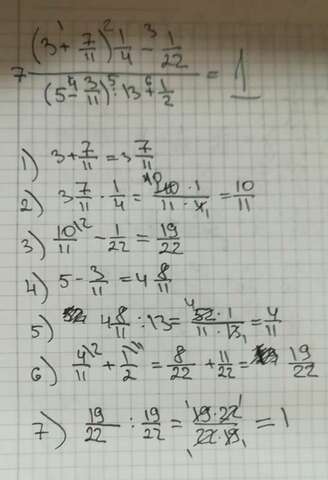 7 ((3 +¹ 7/11)² 1/4 -³ 1/22) / ((5 -⁴ 3/11)⁵ : 13 +⁶ 1/2) = 1
1) 3 + 7/11 = 3 7/11
2) 3 7/11 · 1/4 = 40 · 1 / 11 · 4 = 10/11
3) 10/11 - 1/22 = 19/22
4) 5 - 3/11 = 4 8/11
5) 4 8/11 : 13 = 52 · 1 / 11 · 13 = 4/11
6) 4/11 + 1/2 = 8/22 + 11/22 = 19/22
7) 19/22 : 19/22 = 19 · 22 / 22 · 19 = 1